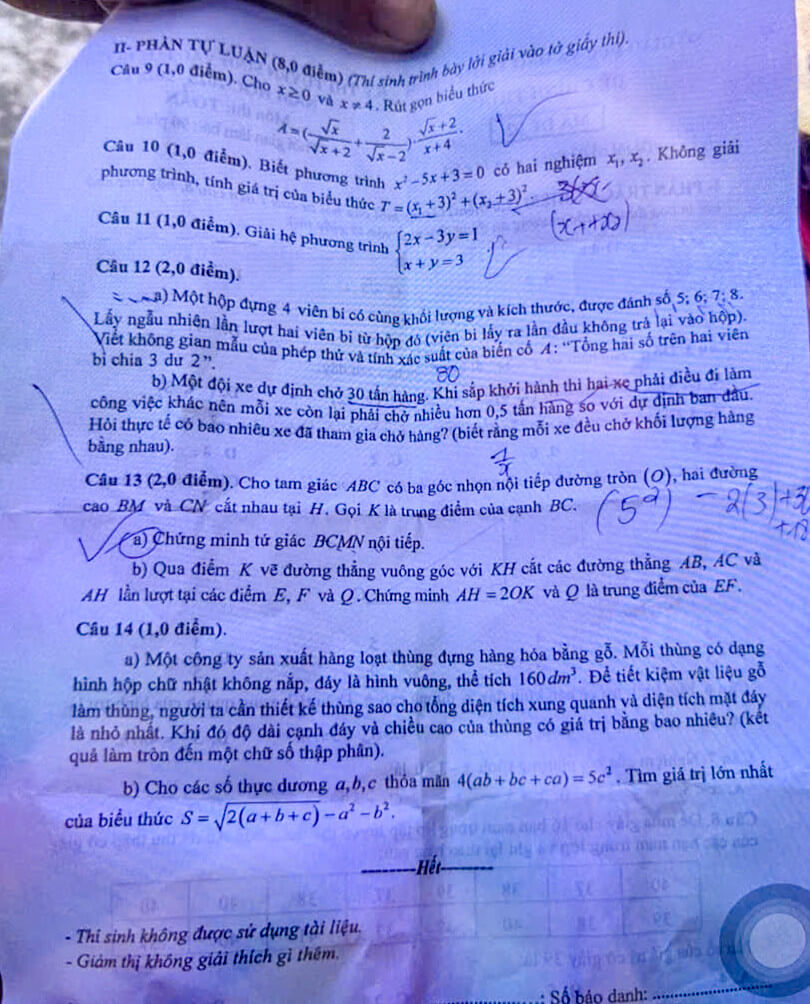 II- PHẦN TỰ LUẬN (8,0 điểm) (Thí sinh trình bày lời giải vào tờ giấy thi).
Câu 9 (1,0 điểm). Cho x≥0 và x ≠ 4. Rút gọn biểu thức
A = (√x/(√x + 2) + 2/(√x − 2)) · (√x + 2)/(x + 4).
Câu 10 (1,0 điểm). Biết phương trình x² − 5x + 3 = 0 có hai nghiệm x₁, x₂. Không giải
phương trình, tính giá trị của biểu thức T = (x₁ + 3)² + (x₂ + 3)².
Câu 11 (1,0 điểm). Giải hệ phương trình { 2x − 3y = 1
x + y = 3
Câu 12 (2,0 điểm).
a) Một hộp đựng 4 viên bi có cùng khối lượng và kích thước, được đánh số 5; 6; 7; 8.
Lấy ngẫu nhiên lần lượt hai viên bi từ hộp đó (viên bi lấy ra lần đầu không trả lại vào hộp).
Viết không gian mẫu của phép thử và tính xác suất của biến cố A: “Tổng hai số trên hai viên
bi chia 3 dư 2”.
80
b) Một đội xe dự định chở 30 tấn hàng. Khi sắp khởi hành thì hai xe phải điều đi làm
công việc khác nên mỗi xe còn lại phải chở nhiều hơn 0,5 tấn hàng so với dự định ban đầu.
Hỏi thực tế có bao nhiêu xe đã tham gia chở hàng? (biết rằng mỗi xe đều chở khối lượng hàng
bằng nhau).
Câu 13 (2,0 điểm). Cho tam giác ABC có ba góc nhọn nội tiếp đường tròn (O), hai đường
cao BM và CN cắt nhau tại H. Gọi K là trung điểm của cạnh BC.
a) Chứng minh tứ giác BCMN nội tiếp.
b) Qua điểm K vẽ đường thẳng vuông góc với KH cắt các đường thẳng AB, AC và
AH lần lượt tại các điểm E, F và Q. Chứng minh AH = 2OK và Q là trung điểm của EF.
Câu 14 (1,0 điểm).
a) Một công ty sản xuất hàng loạt thùng đựng hàng hóa bằng gỗ. Mỗi thùng có dạng
hình hộp chữ nhật không nắp, đáy là hình vuông, thể tích 160dm³. Để tiết kiệm vật liệu gỗ
làm thùng, người ta cần thiết kế thùng sao cho tổng diện tích xung quanh và diện tích mặt đáy
là nhỏ nhất. Khi đó độ dài cạnh đáy và chiều cao của thùng có giá trị bằng bao nhiêu? (kết
quả làm tròn đến một chữ số thập phân).
b) Cho các số thực dương a,b,c thỏa mãn 4(ab + bc + ca) = 5c². Tìm giá trị lớn nhất
của biểu thức S = √(2(a + b + c)) − a² − b².
----------Hết----------
- Thí sinh không được sử dụng tài liệu.
- Giám thị không giải thích gì thêm.
: Số báo danh: